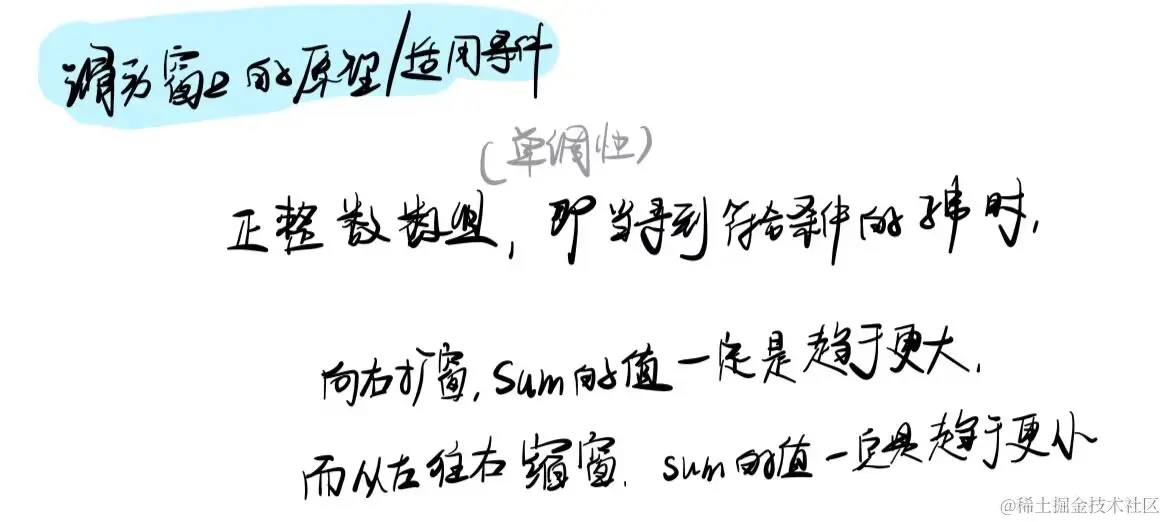 滑动窗口的原理/适用条件
(单调性)
正整数数组，即当得到符合条件的子串时，
向右扩窗，sum的值一定是趋于更大，
而从左往右缩窗，sum的值一定是趋于更小
@稀土掘金技术社区